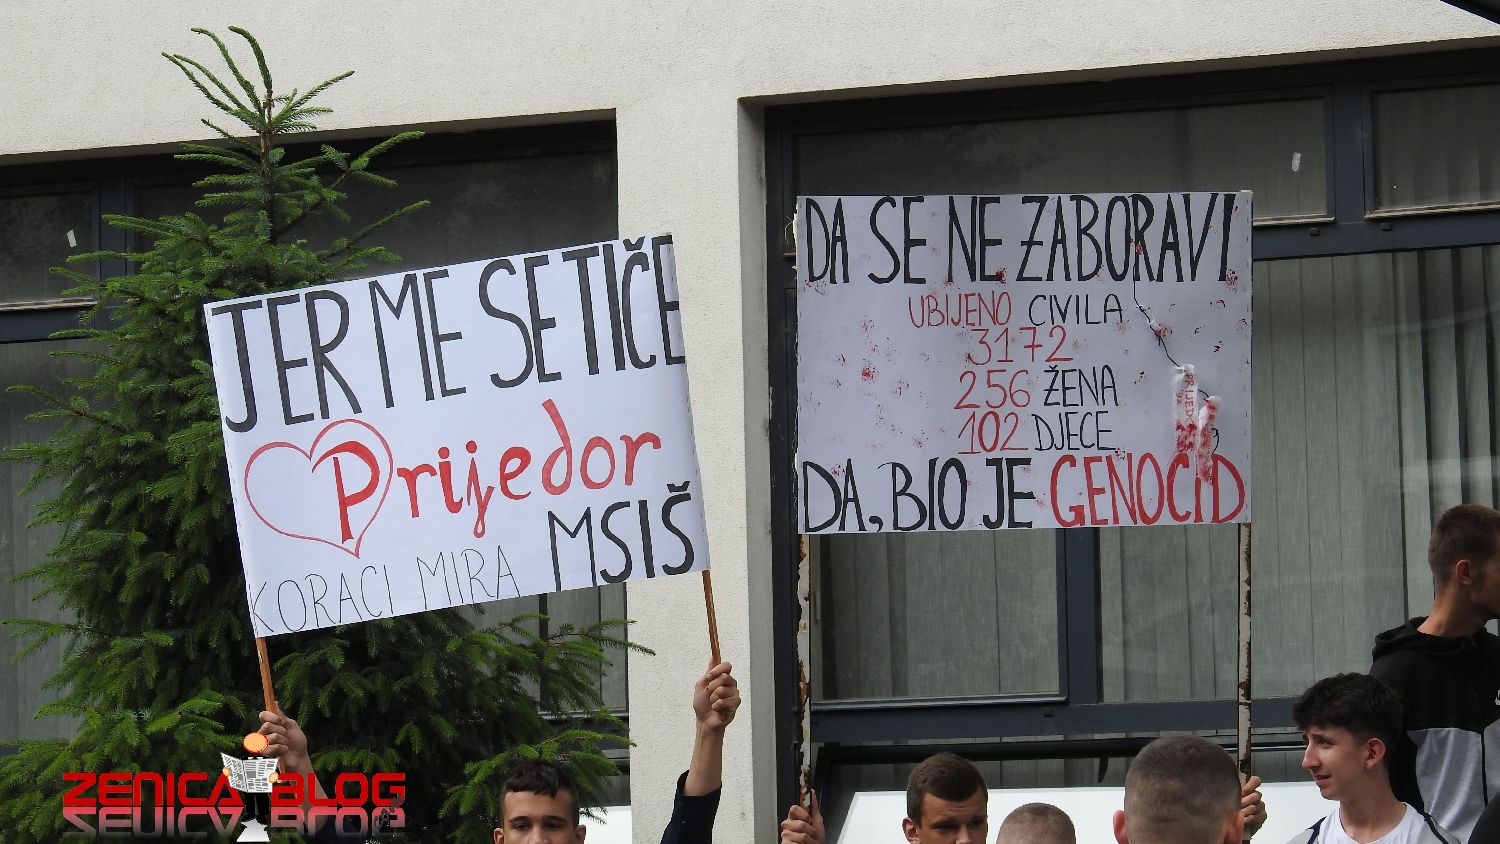 JER ME SE TIČE
Prijedor
KORACI MIRA MSIŠ
DA SE NE ZABORAVI
UBIJENO CIVILA
3172
256 ŽENA
102 DJECE
PRIJEDOR
92
DA, BIO JE GENOCID
ZENICA BLOG